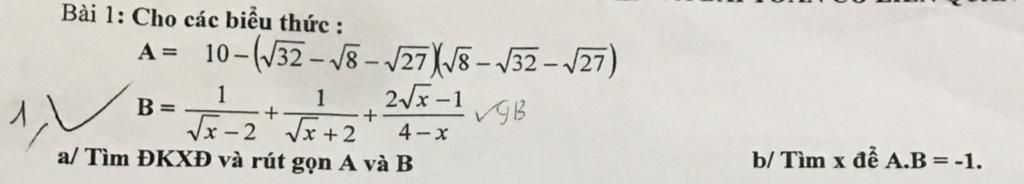 Bài 1: Cho các biểu thức :
A = 10 – (√32 – √8 – √27)(√8 – √32 – √27)
1, B = 1/(√x – 2) + 1/(√x + 2) + (2√x – 1)/(4 – x)
a/ Tìm ĐKXĐ và rút gọn A và B
b/ Tìm x để A.B = -1.